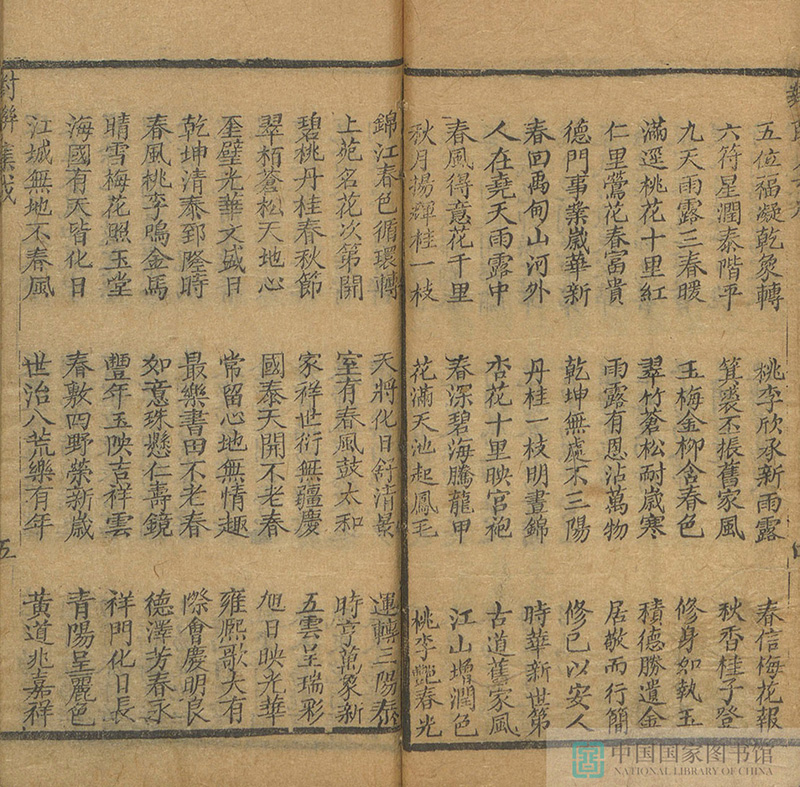 五位福凝乾象轉
桃李欣承新雨露
春信梅花報
六符星潤泰階平
箕裘丕振舊家風
秋香桂子登
九天雨露三春暖
玉梅金柳含春色
修身如執玉
滿逕桃花十里紅
翠竹蒼松耐歲寒
積德勝遺金
仁里鶯花春富貴
雨露有恩沾萬物
居敬而行簡
德門事業歲華新
乾坤無處不三陽
修已以安人
春回禹甸山河外
丹桂一枝明晝錦
時華新世第
人在堯天雨露中
杏花十里映宮袍
古道舊家風
春風得意花千里
春深碧海騰龍甲
江山增潤色
秋月揚輝桂一枝
花滿天池起鳳毛
桃李艷春光
錦江春色循環轉
天將化日舒清景
運轉三陽泰
上苑名花次第開
室有春風鼓太和
時亨萬象新
碧桃丹桂春秋節
家祥世衍無疆慶
五雲呈瑞彩
翠栢蒼松天地心
國泰天開不老春
旭日映光華
奎壁光華文盛日
常留心地無情趣
雍熙歌大有
乾坤清泰郅隆時
最樂書田不老春
際會慶明良
春風桃李鳴金馬
如意珠懸仁壽鏡
德澤芳春永
晴雪梅花照玉堂
豐年玉映吉祥雲
祥門化日長
海國有天皆化日
春敷四野榮新歲
青陽呈麗色
江城無地不春風
世治八荒樂有年
黃道兆嘉祥
對聯集成
五
中国国家图书馆
NATIONAL LIBRARY OF CHINA